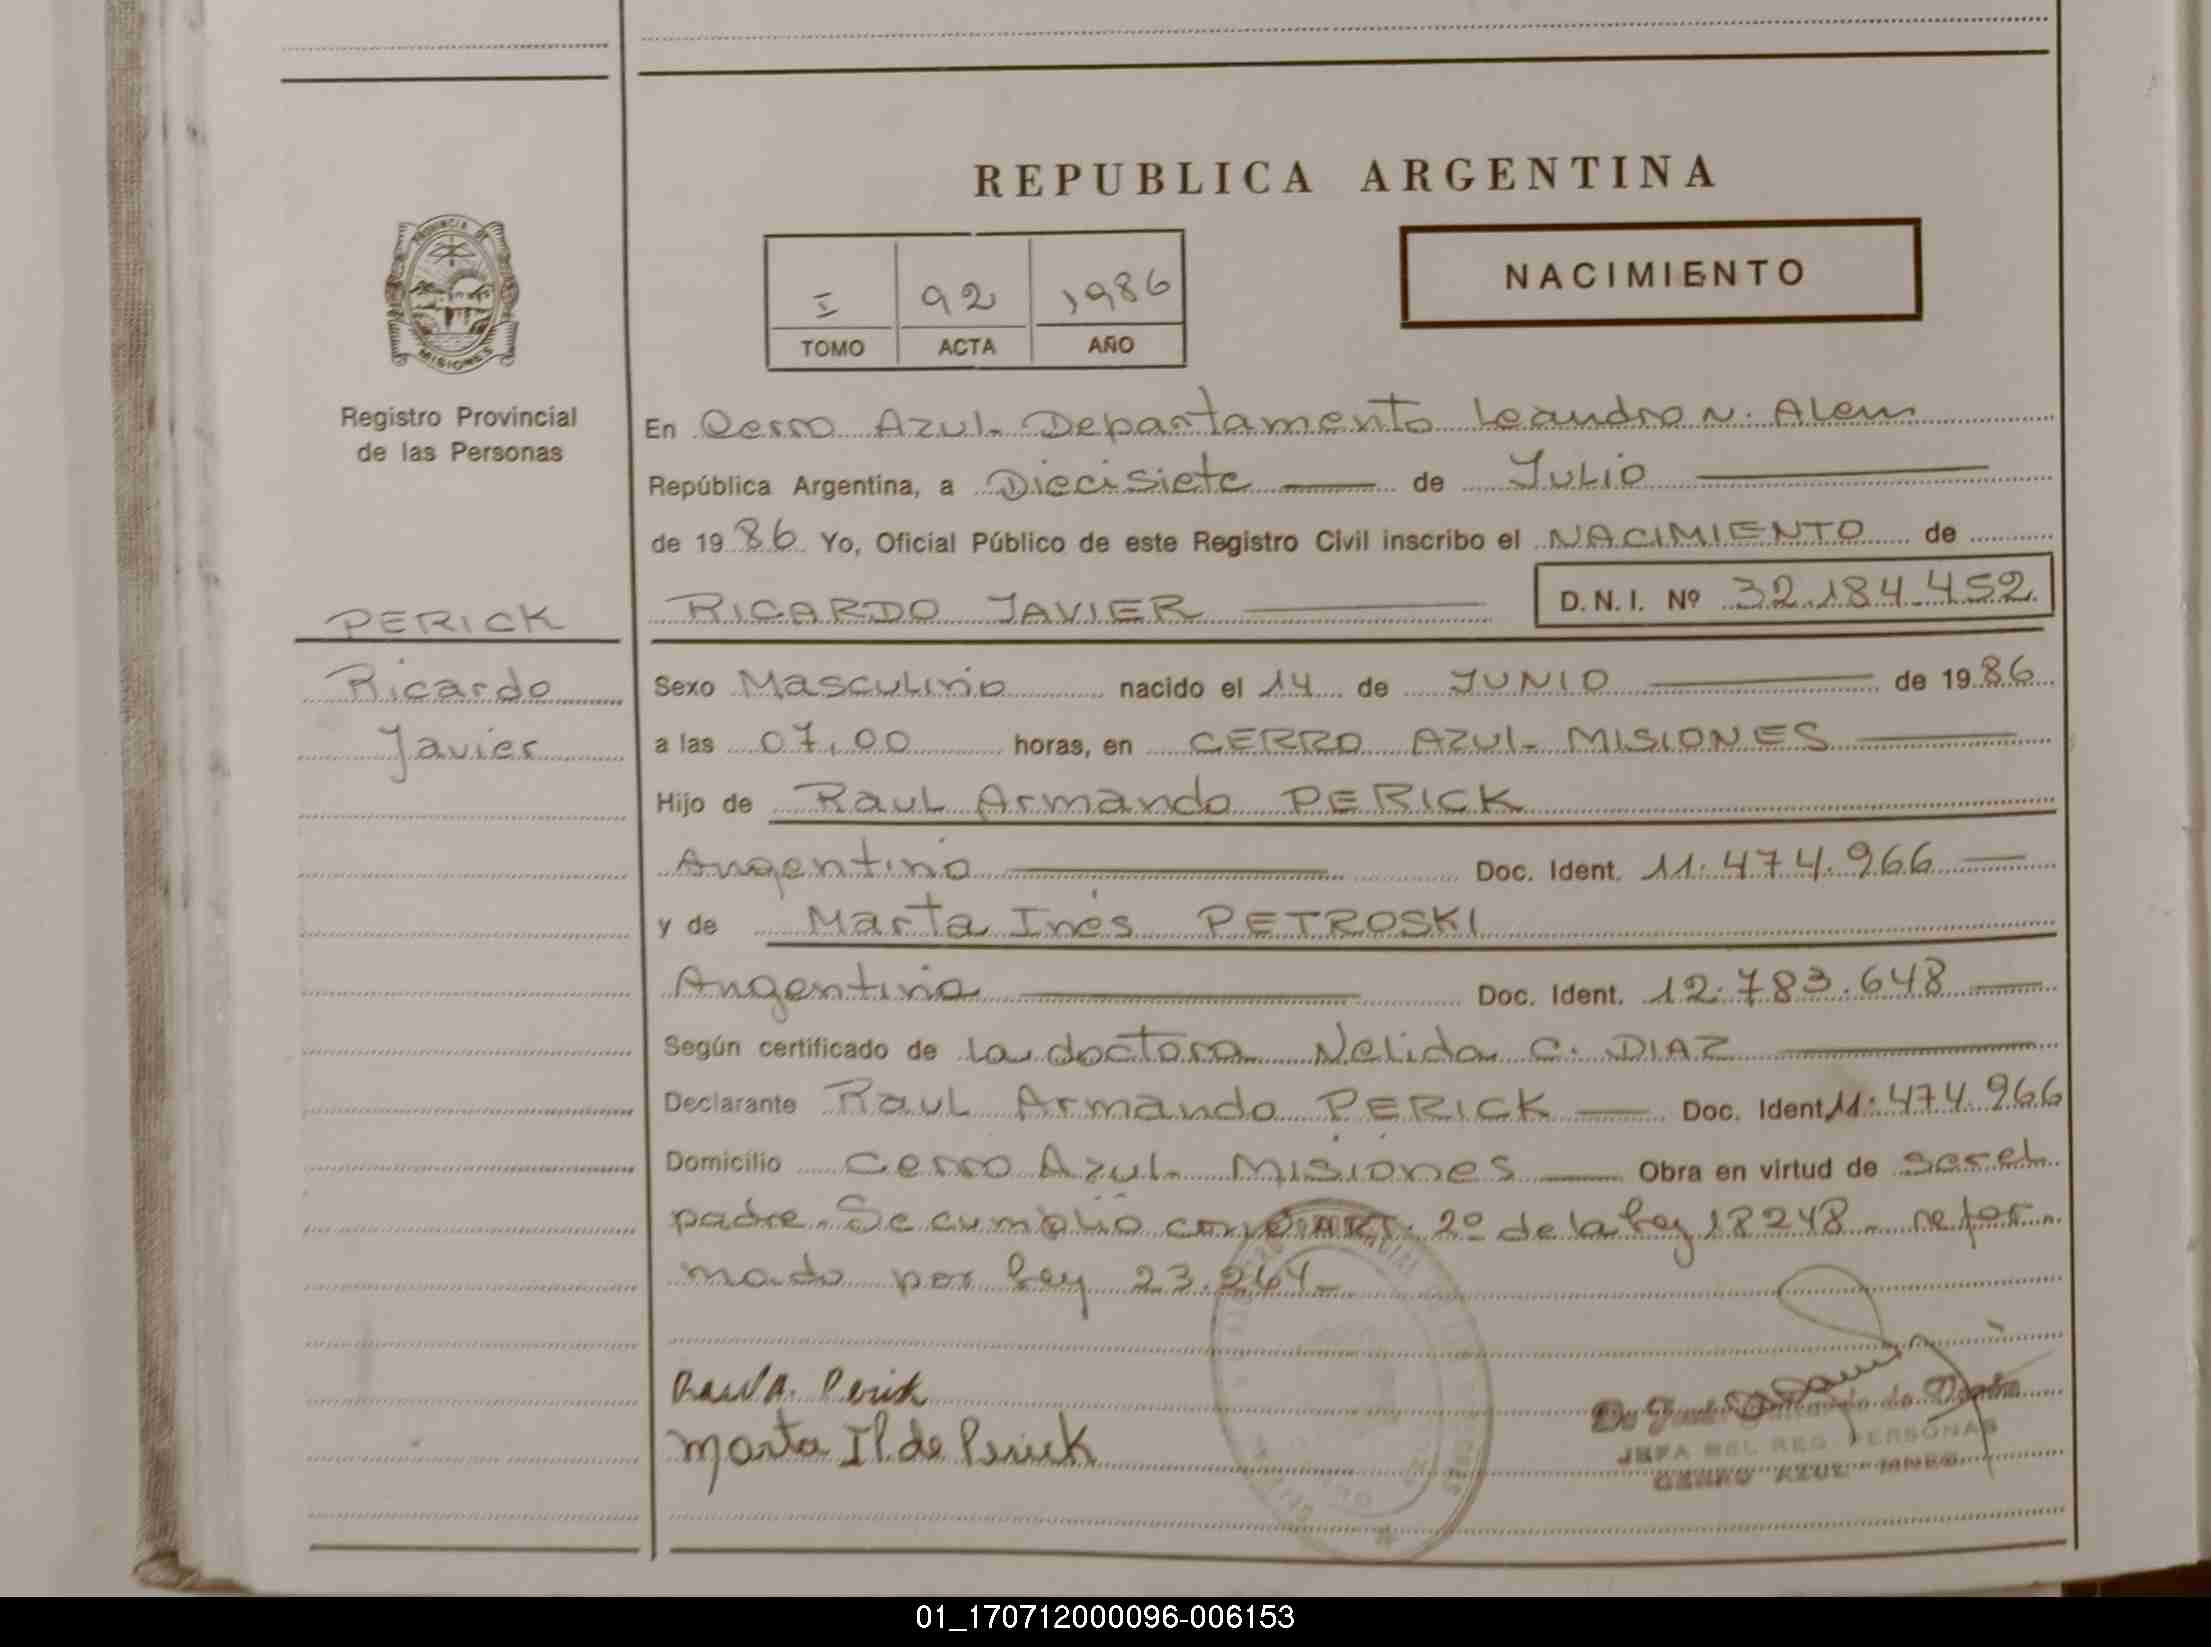 REPUBLICA ARGENTINA
NACIMIENTO
I 92 1986
TOMO ACTA AÑO
PROVINCIA DE
MISIONES
Registro Provincial
de las Personas
En Cerro Azul. Departamento Leandro N. Alem
República Argentina, a Diecisiete de Julio
de 1986 Yo, Oficial Público de este Registro Civil inscribo el NACIMIENTO de
RICARDO JAVIER D.N.I. Nº 32.184.452
PERICK
Ricardo
Javier
Sexo Masculino nacido el 14 de JUNIO de 1986
a las 07,00 horas, en CERRO AZUL - MISIONES
Hijo de Raul Armando PERICK
Argentino Doc. Ident. 11.474.966
y de Marta Inés PETROSKI
Argentina Doc. Ident. 12.783.648
Según certificado de la doctora Nelida C. DIAZ
Declarante Raul Armando PERICK Doc. Ident. 11.474.966
Domicilio Cerro Azul - Misiones Obra en virtud de ser el
padre. Se cumplió con el ART. 2º de la ley 18248 - refor-
mado por ley 23.264-
Raul A. Perick
Marta I P. de Perick
JEFA DEL REG. PERSONAS
CERRO AZUL - MNES.
01_170712000096-006153